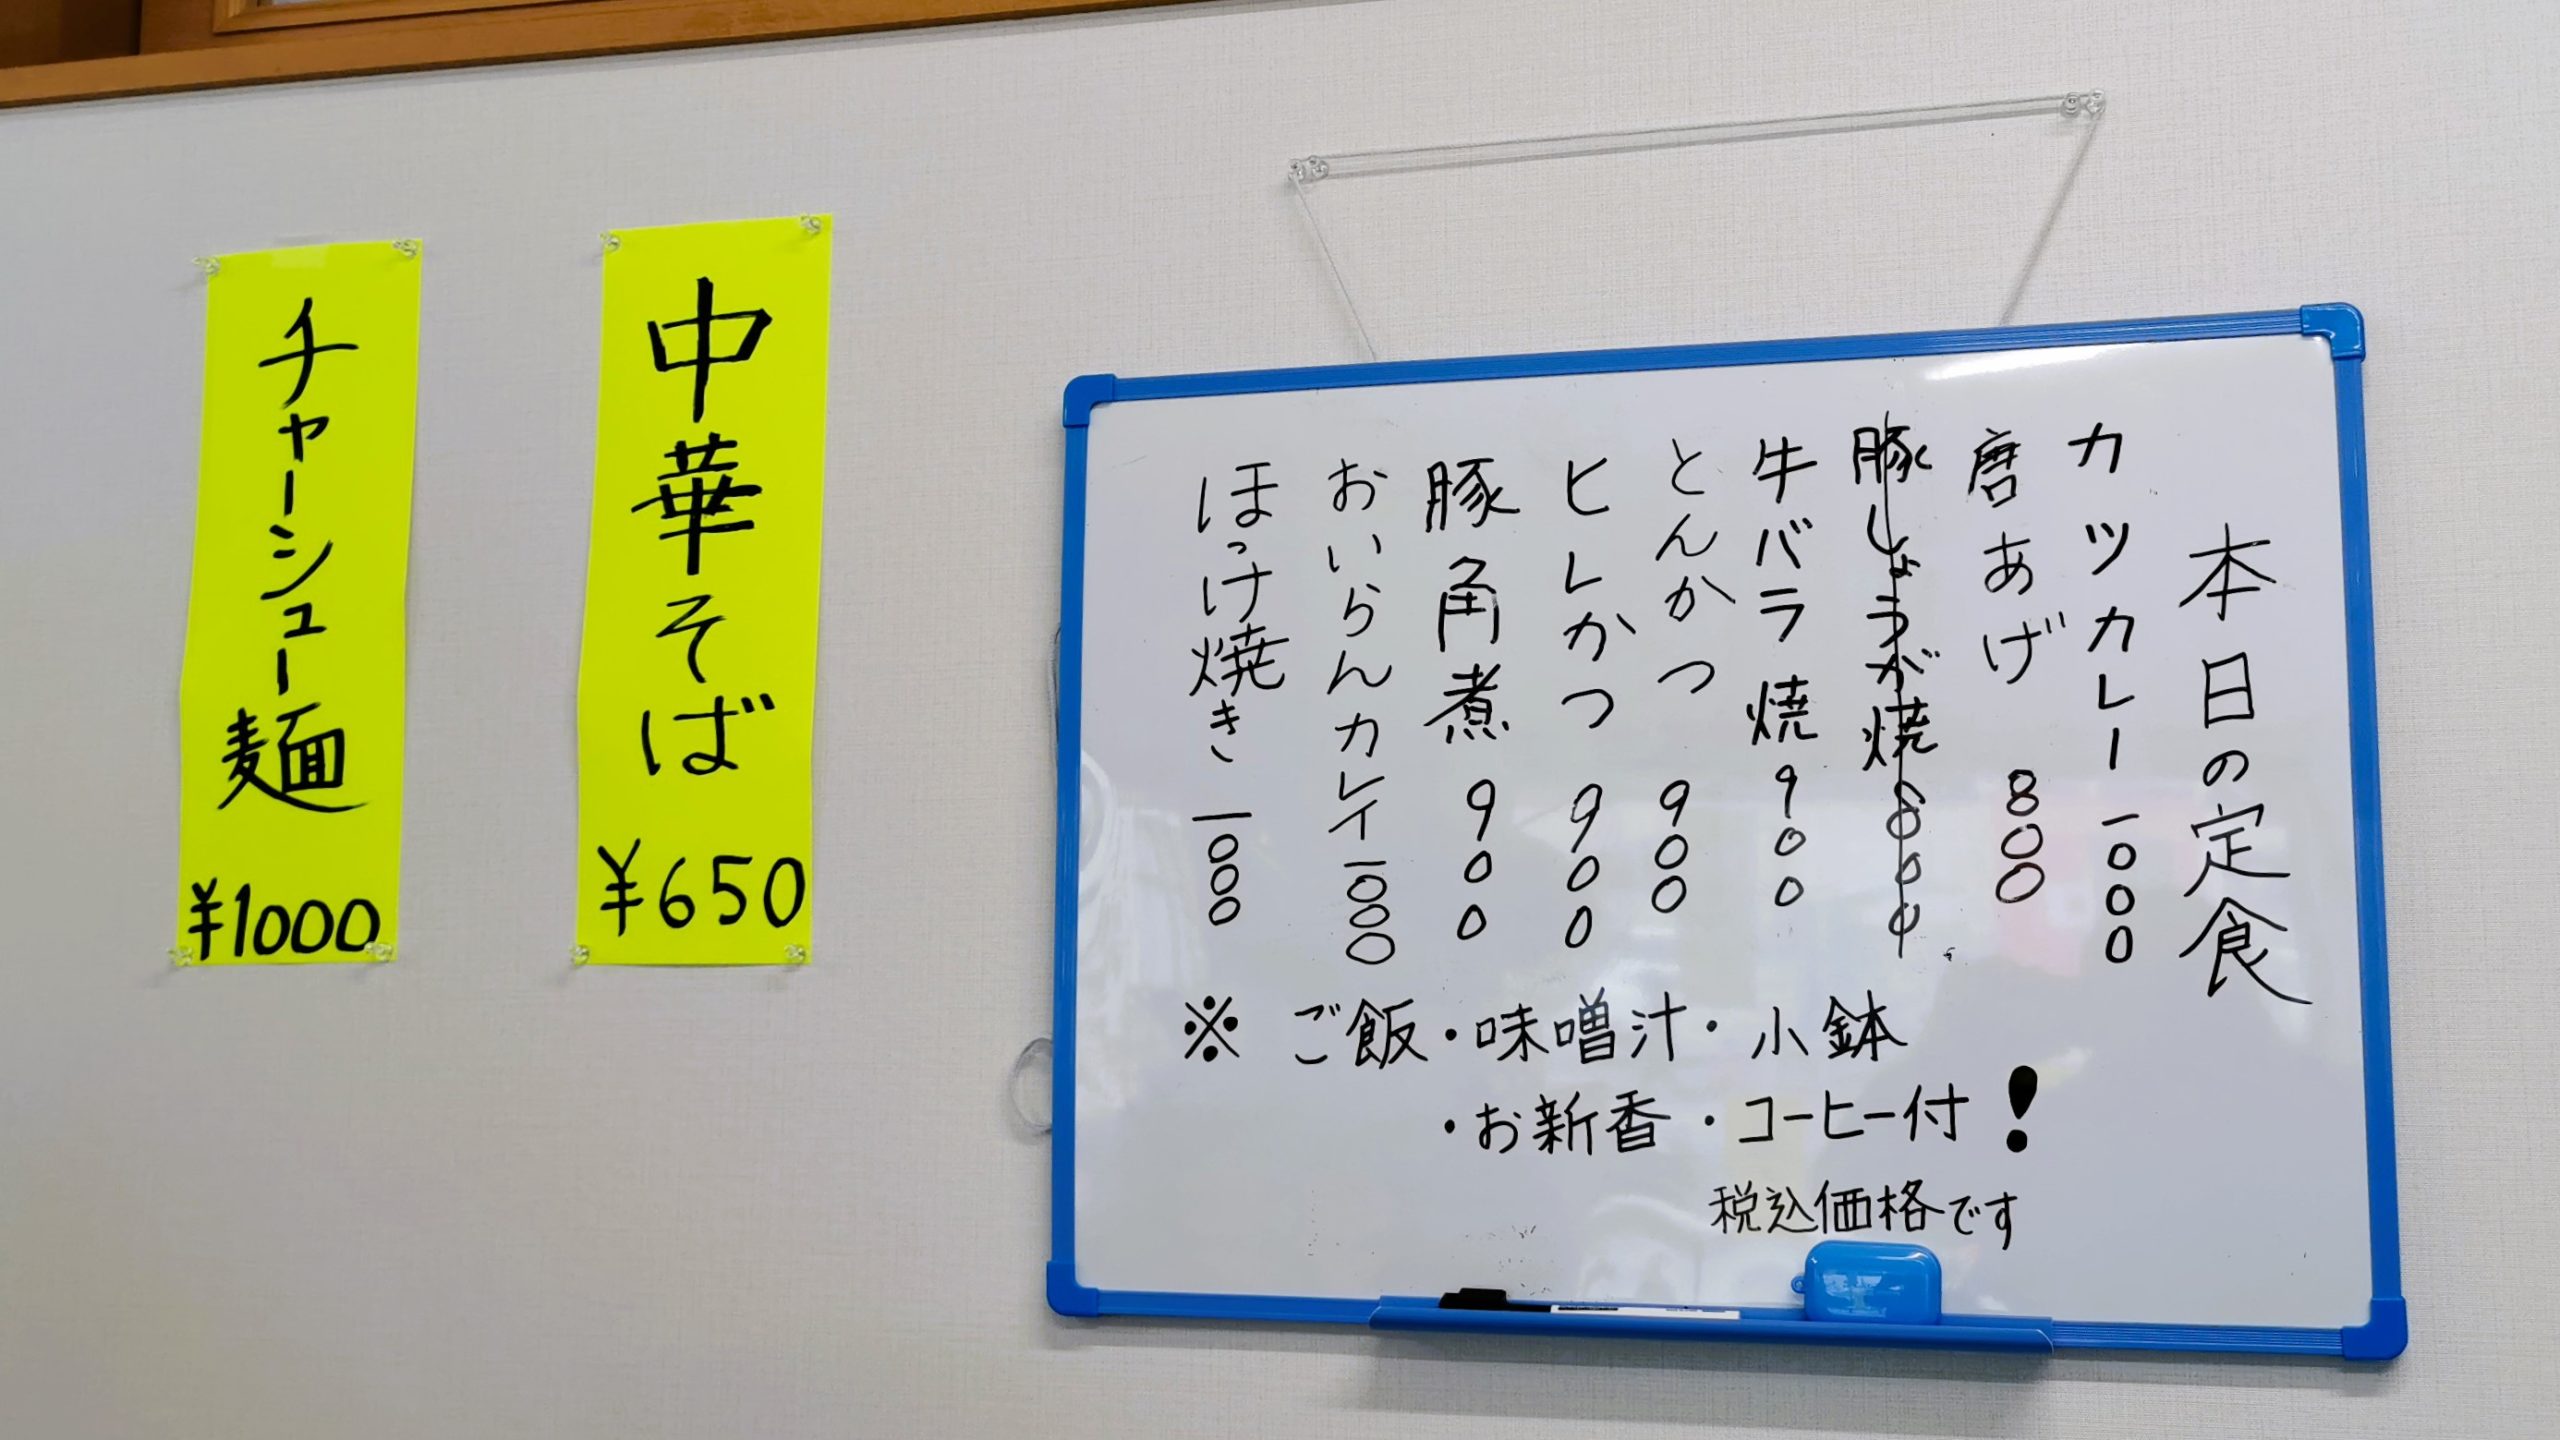 本日の定食
カツカレー 一000
唐あげ 800
豚しょうが焼 800
牛バラ焼 900
とんかつ 900
ヒレかつ 900
豚角煮 900
おいらんカレイ 一000
ほっけ焼き 一000
※ ご飯・味噌汁・小鉢
・お新香・コーヒー付！
税込価格です
中華そば ¥650
チャーシュー麺 ¥1000